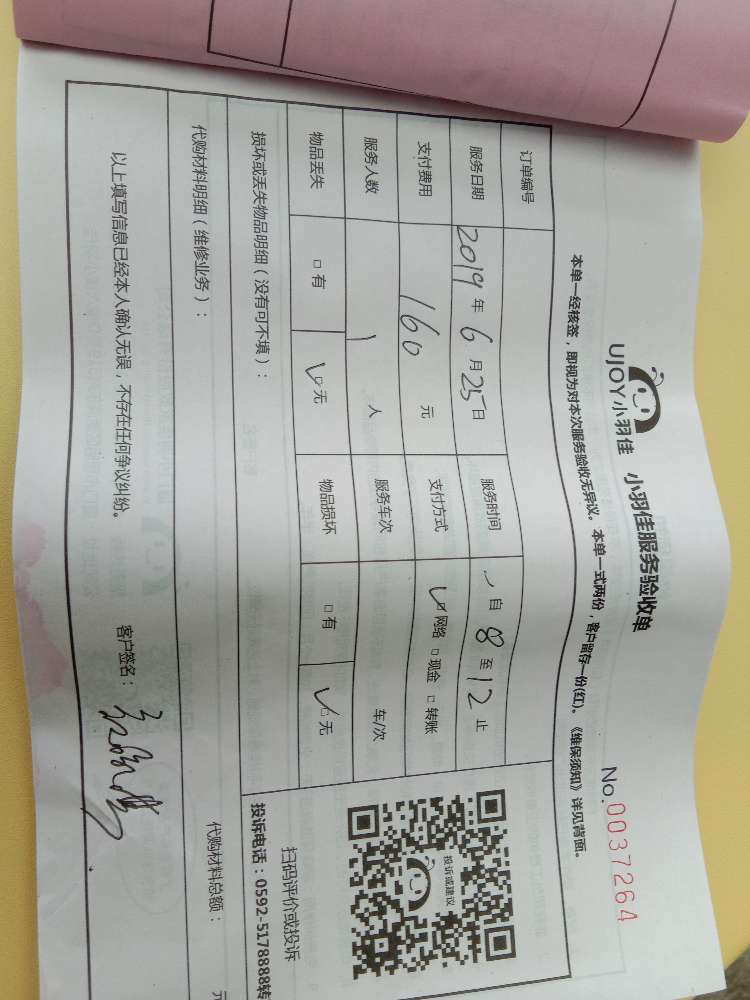 UJOY小羽佳 小羽佳服务验收单 No.0037264
本单一经核签，即视为对本次服务验收无异议。本单一式两份，客户留存一份(红)。《维保须知》详见背面。
订单编号
服务日期 2019年6月25日 服务时间 自8至12止
支付费用 160元 支付方式 ☑网络 □现金 □转账
服务人数 1人 服务车次 车/次
物品丢失 □有 ☑无 物品损坏 □有 ☑无
投诉或建议
扫码评价或投诉
投诉电话：0592-5178888转
损坏或丢失物品明细（没有可不填）：
代购材料明细（维修业务）： 代购材料总额： 元
以上填写信息已经本人确认无误，不存在任何争议纠纷。 客户签名：